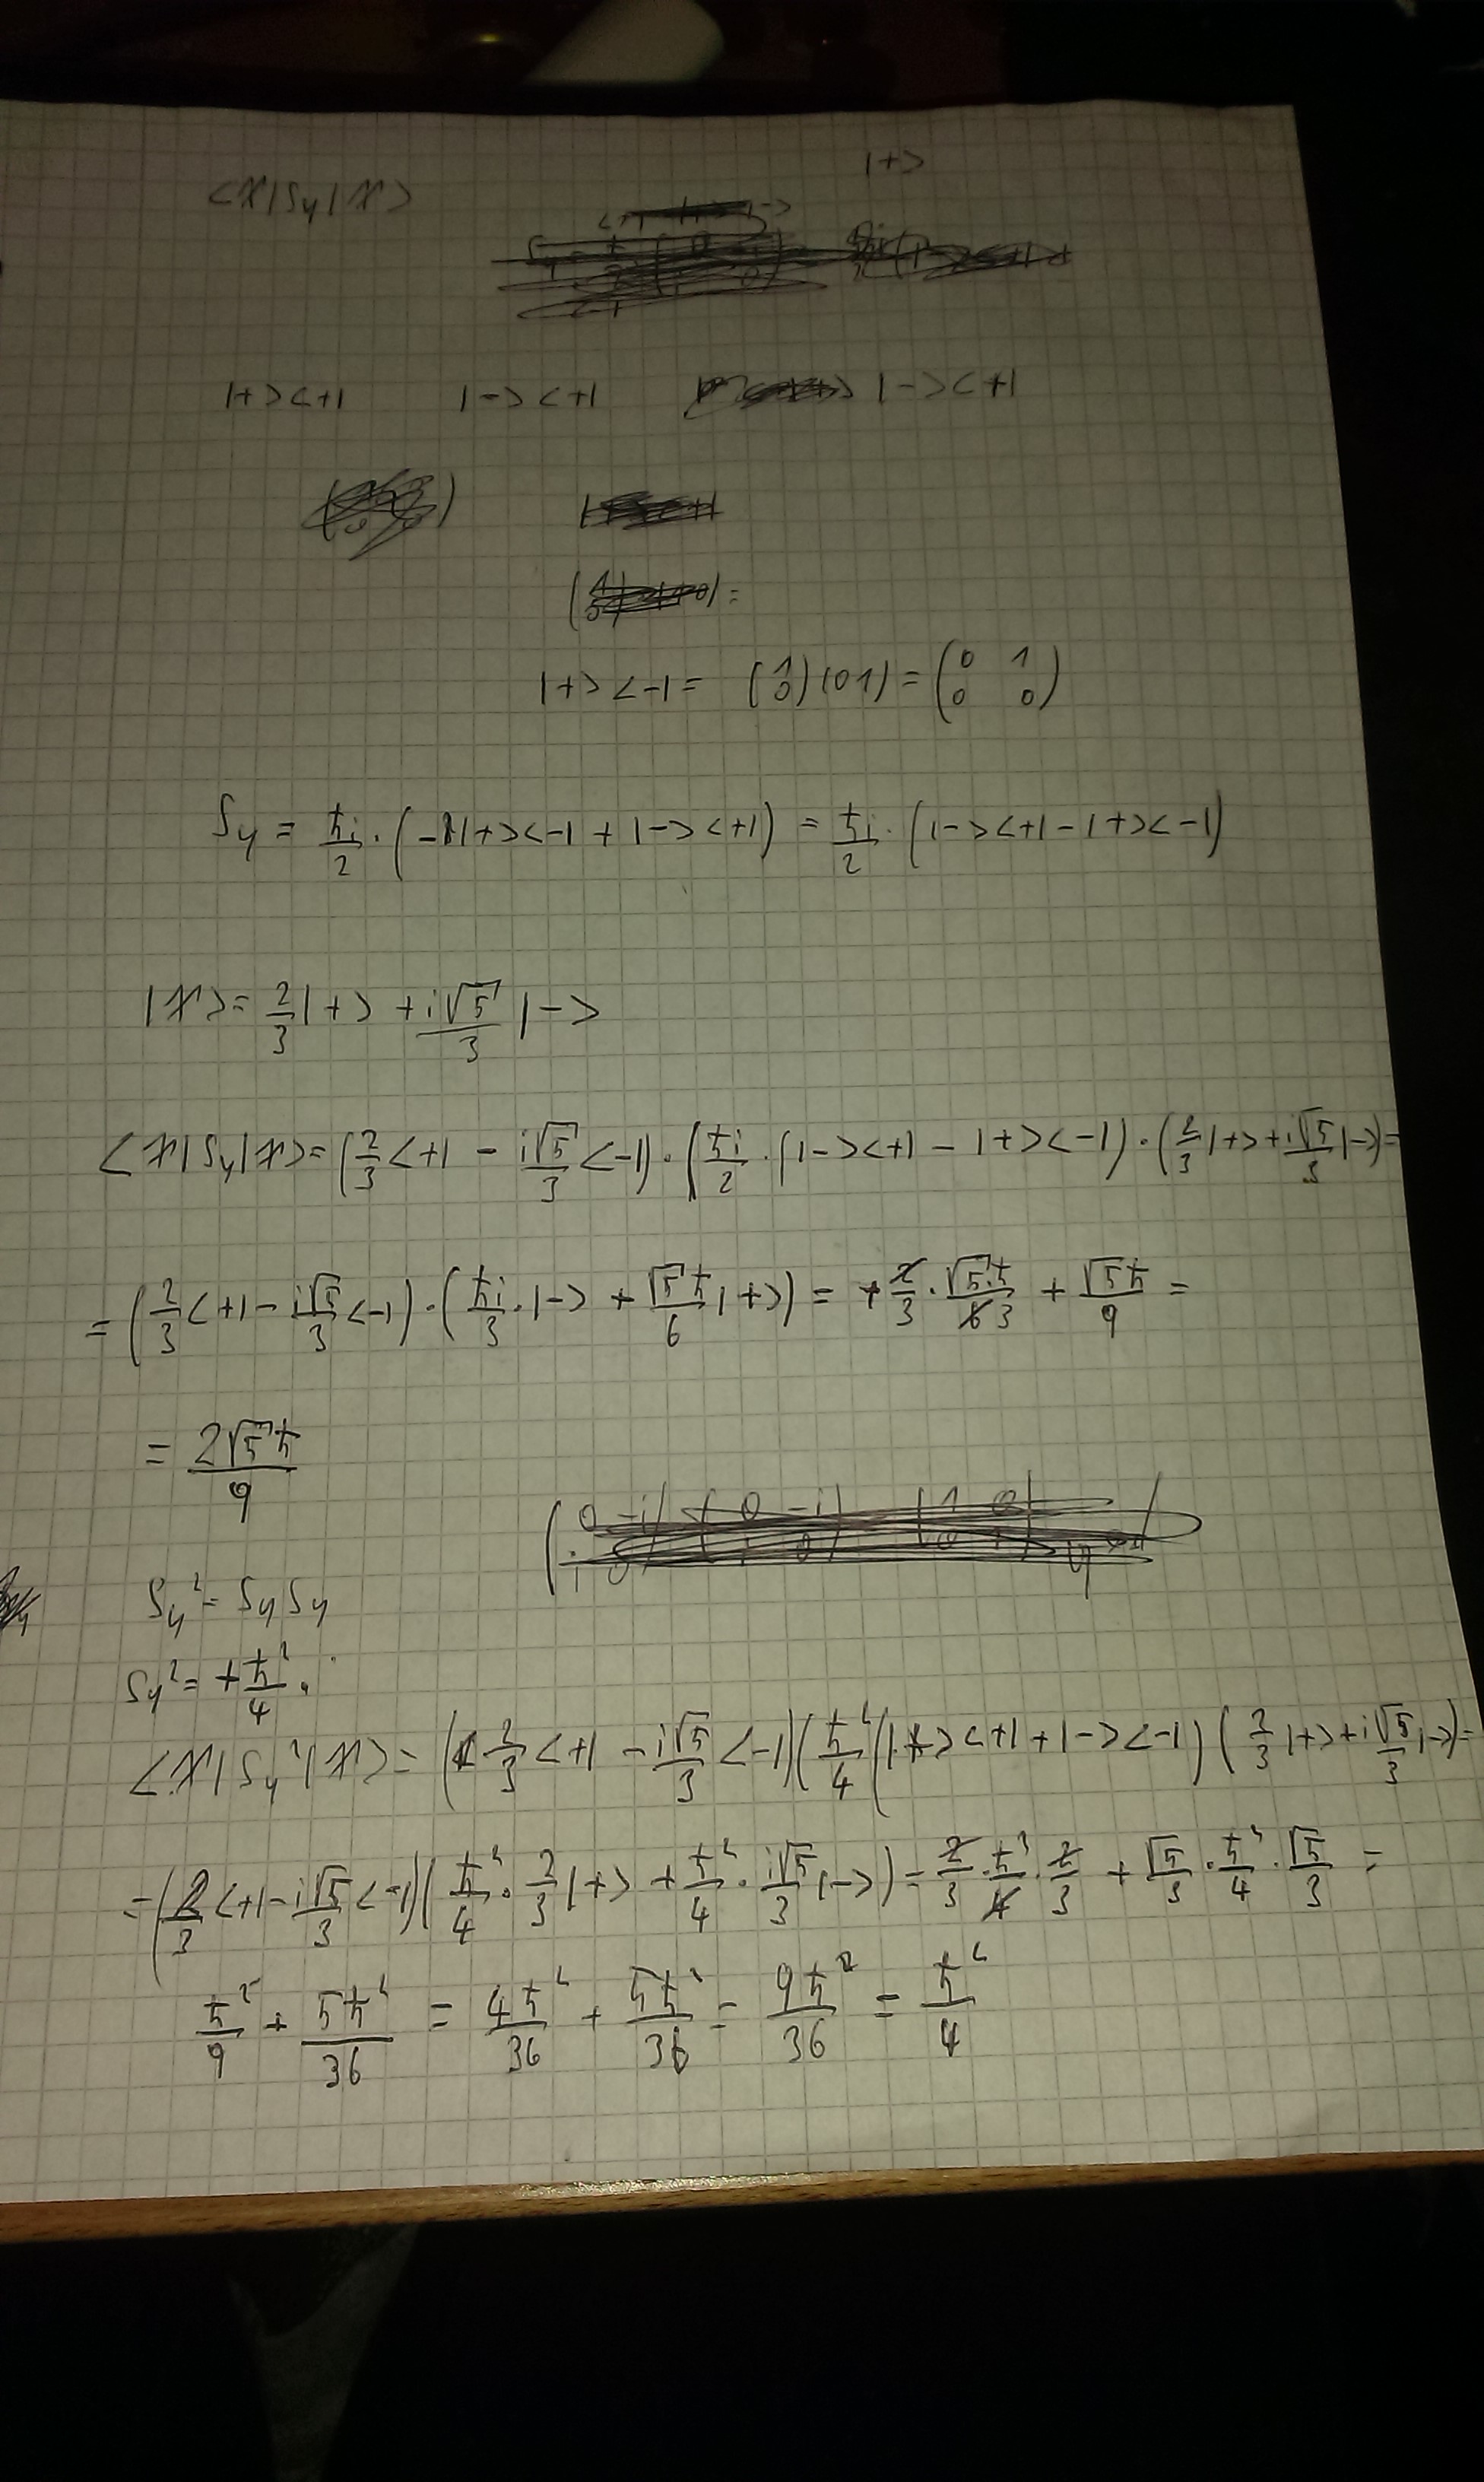 |+>
<X|Sy|X>
|+><+| |-><+| |-><+|
|+><-| = (1 0)(0 1) = (0 1 0 0)
Sy = ħi/2 · (-|+><-| + |-><+|) = ħi/2 · (|-><+| - |+><-|)
|X> = 2/3 |+> + i√5/3 |->
<X|Sy|X> = (2/3 <+| - i√5/3 <-|) · (ħi/2 · (|-><+| - |+><-|) · (2/3 |+> + i√5/3 |->) =
= (2/3 <+| - i√5/3 <-|) · (ħi/3 · |-> + √5ħ/6 |+>) = + 2/3 · √5·ħ/6 3 + √5ħ/9 =
= 2√5ħ/9
Sy² = Sy Sy
Sy² = + ħ²/4 ·
<X|Sy²|X> = (2/3 <+| - i√5/3 <-|)(ħ²/4 (|+><+| + |-><-|) (2/3 |+> + i√5/3 |->) =
= (2/3 <+| - i√5/3 <-|)(ħ²/4 · 2/3 |+> + ħ²/4 · i√5/3 |->) = 2/3 · ħ²/4 · 2/3 + √5/3 · ħ²/4 · √5/3 =
ħ²/9 + 5ħ²/36 = 4ħ²/36 + 5ħ²/36 = 9ħ²/36 = ħ²/4